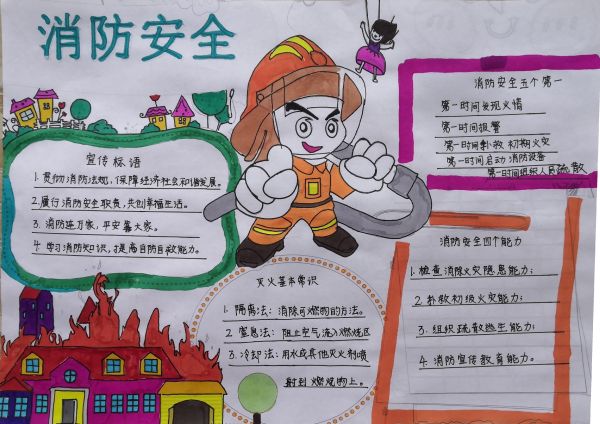 消防安全
宣传标语
1.贯彻消防法规，保障经济社会和谐发展。
2.履行消防安全职责，共创幸福生活。
3.消防连万家，平安靠大家。
4.学习消防知识，提高自防自救能力。
灭火基本常识
1.隔离法：消除可燃物的方法。
2.窒息法：阻止空气流入燃烧区
3.冷却法：用水或其他灭火剂喷
射到燃烧物上。
消防安全五个第一
第一时间发现火情
第一时间报警
第一时间扑救初期火灾
第一时间启动消防设备
第一时间组织人员疏散
消防安全四个能力
1.检查消除火灾隐患能力；
2.扑救初级火灾能力；
3.组织疏散逃生能力；
4.消防宣传教育能力。